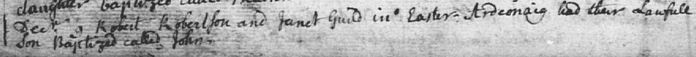 daughter baptized called
Decr , Robert Robertson and Janet Guild in Easter-Ardeonaig had their Lawfull
Son Baptized called John